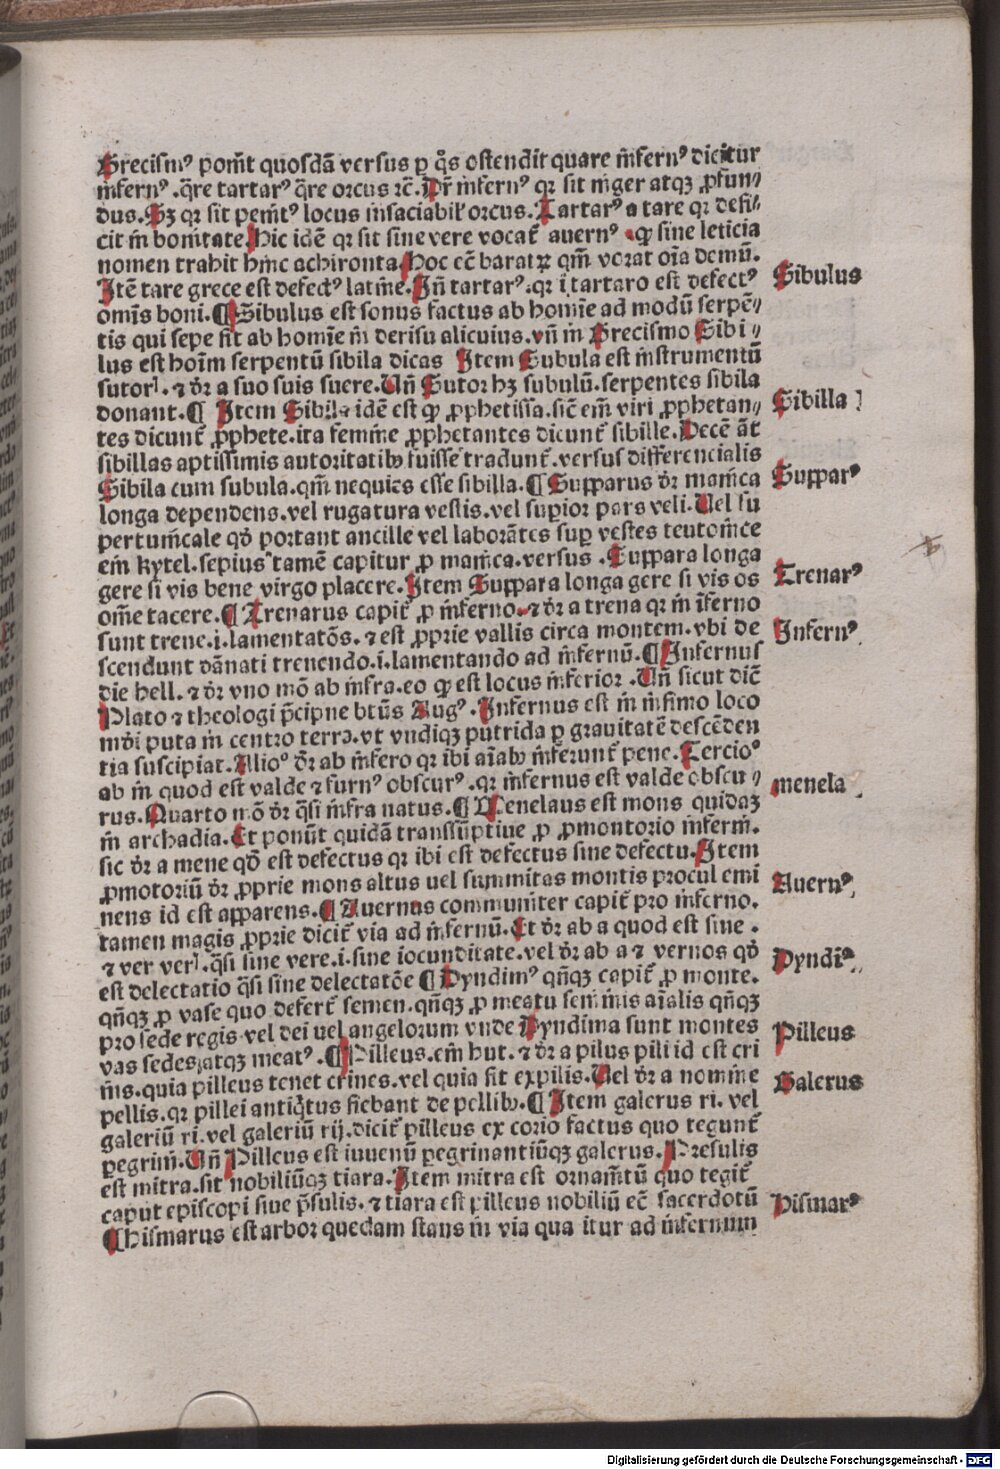 Grecismꝰ ponit quosdã versus ꝑ qͦs ostendit quare infernꝰ dicitur
infernꝰ .qͣre tartarꝰ qͣre orcus ⁊c̃. Dr̃ infernꝰ qꝛ sit niger atqꝫ ꝓfun⸗
dus. Sꝫ qꝛ sit penitꝰ locus insaciabil' orcus. Tartarꝰ a tare qꝛ defi⸗
cit in bonitate. Hic idẽ qꝛ sit sine vere vocat̃ auernꝰ .qꝙ sine leticia
nomen trahit hinc achironta. Hoc eẽ baratꝝ qm̃ vorat oĩa demũ.
Itẽ tare grece est defectꝰ latine. Iñ tartarꝰ .qꝛ ĩ tartaro est defectꝰ
omĩs boni. ¶ Sibulus est sonus factus ab homĩe ad modũ serpẽ⸗
tis qui sepe fit ab homĩe in derisu alicuius. vñ in Grecismo Sibi⸗
lus est hoĩm serpentũ sibila dicas Item Subula est instrumentũ
sutorꝭ. ⁊ dr̃ a suo suis suere. Uñ Sutor hꝫ subulũ. serpentes sibila
donant. ¶ Item Sibila idẽ est qꝙ ꝓphetissa. sic̃ em̃ viri ꝓphetan⸗
tes dicunt̃ ꝓphete. ita femine ꝓphetantes dicunt̃ sibille. Decẽ aũt
sibillas aptissimis autoritatibꝰ fuisse tradunt̃. versus differencialis
Sibila cum subula. qm̃ nequies esse sibilla. ¶ Supparus dr̃ manica
longa dependens. vel rugatura vestis. vel supior pars veli. Uel su
pertunicale qd̓ portant ancille vel laborãtes suꝑ vestes teutonice
em̃ kytel. sepius tamẽ capitur ꝓ manica. versus . Suppara longa
gere si vis bene virgo placere. Item Suppara longa gere si vis os
omẽ tacere. ¶ Trenarus capit̃ ꝓ inferno. ⁊ dr̃ a trena qꝛ in ĩferno
sunt trene .i. lamentatõs. ⁊ est ꝓprie vallis circa montem. vbi de
scendunt dãnati trenendo .i. lamentando ad infernũ. ¶ Infernus
die hell. ⁊ dr̃ vno mõ ab infra. eo qꝙ est locus inferior . Uñ sicut dic̃
Plato ⁊ theologi p̃cipue btũs Augꝰ. Infernus est in infimo loco
mũdi puta in centro terre. vt vndiqꝫ putrida ꝑ grauitatẽ descẽden
tia suscipiat. Alioꝰ dr̃ ab infero qꝛ ibi aĩabꝰ inferunt̃ pene. Tercioꝰ
ab in quod est valde ⁊ furnꝰ obscurꝰ. qꝛ infernus est valde obscu⸗
rus. Quarto mõ dr̃ qͣsi infra natus. ¶ Menelaus est mons quidaꝫ
in archadia. Et ponũt quidã transsũptiue ꝓ ꝓmontorio inferni.
sic dr̃ a mene qd̓ est defectus qꝛ ibi est defectus sine defectu. Item
ꝓmotoriũ dr̃ ꝓprie mons altus uel summitas montis procul emi
nens id est apparens. ¶ Auernus communiter capit̃ pro inferno.
tamen magis ꝓprie dicit̃ via ad infernũ. Et dr̃ ab a quod est sine .
⁊ ver verꝭ. qͣsi sine vere .i. sine iocunditate. vel dr̃ ab a ⁊ vernos qd̓
est delectatio qͣsi sine delectatõe ¶ Dyndimꝰ qñqꝫ capit̃ ꝓ monte.
qñqꝫ ꝓ vase quo defert̃ semen. qñqꝫ ꝓ meatu seminis aĩalis qñqꝫ
pro sede regis vel dei uel angelorum vnde Dyndima sunt montes
vas sedes atqꝫ meatꝰ . ¶ Pilleus. ein hut. ⁊ dr̃ a pilus pili id est cri
nis. quia pilleus tenet crines. vel quia fit ex pilis. Uel dr̃ a nomine
pellis. qꝛ pillei antiqͥtus fiebant de pellibꝰ. ¶ Item galerus ri. vel
galeriũ ri. vel galeriũ rij. dicit̃ pilleus ex corio factus quo tegunt̃
ꝑegrini. Uñ Pilleus est iuuenũ ꝑegrinantiũqꝫ galerus. Presulis
est mitra. sit nobiliũqꝫ tiara. Item mitra est ornam̃tũ quo tegit̃
caput episcopi siue p̃sulis. ⁊ tiara est pilleus nobiliũ eẽ sacerdotũ
¶ Hismarus est arbor quedam stans in via qua itur ad infernum
Sibulus
Sibilla
Supparꝰ
Trenarꝰ
Infernꝰ
menela
Auernꝰ
Dyndiꝰ
Pilleus
Galerus
Hismarꝰ
Digitalisierung gefördert durch die Deutsche Forschungsgemeinschaft - DFG